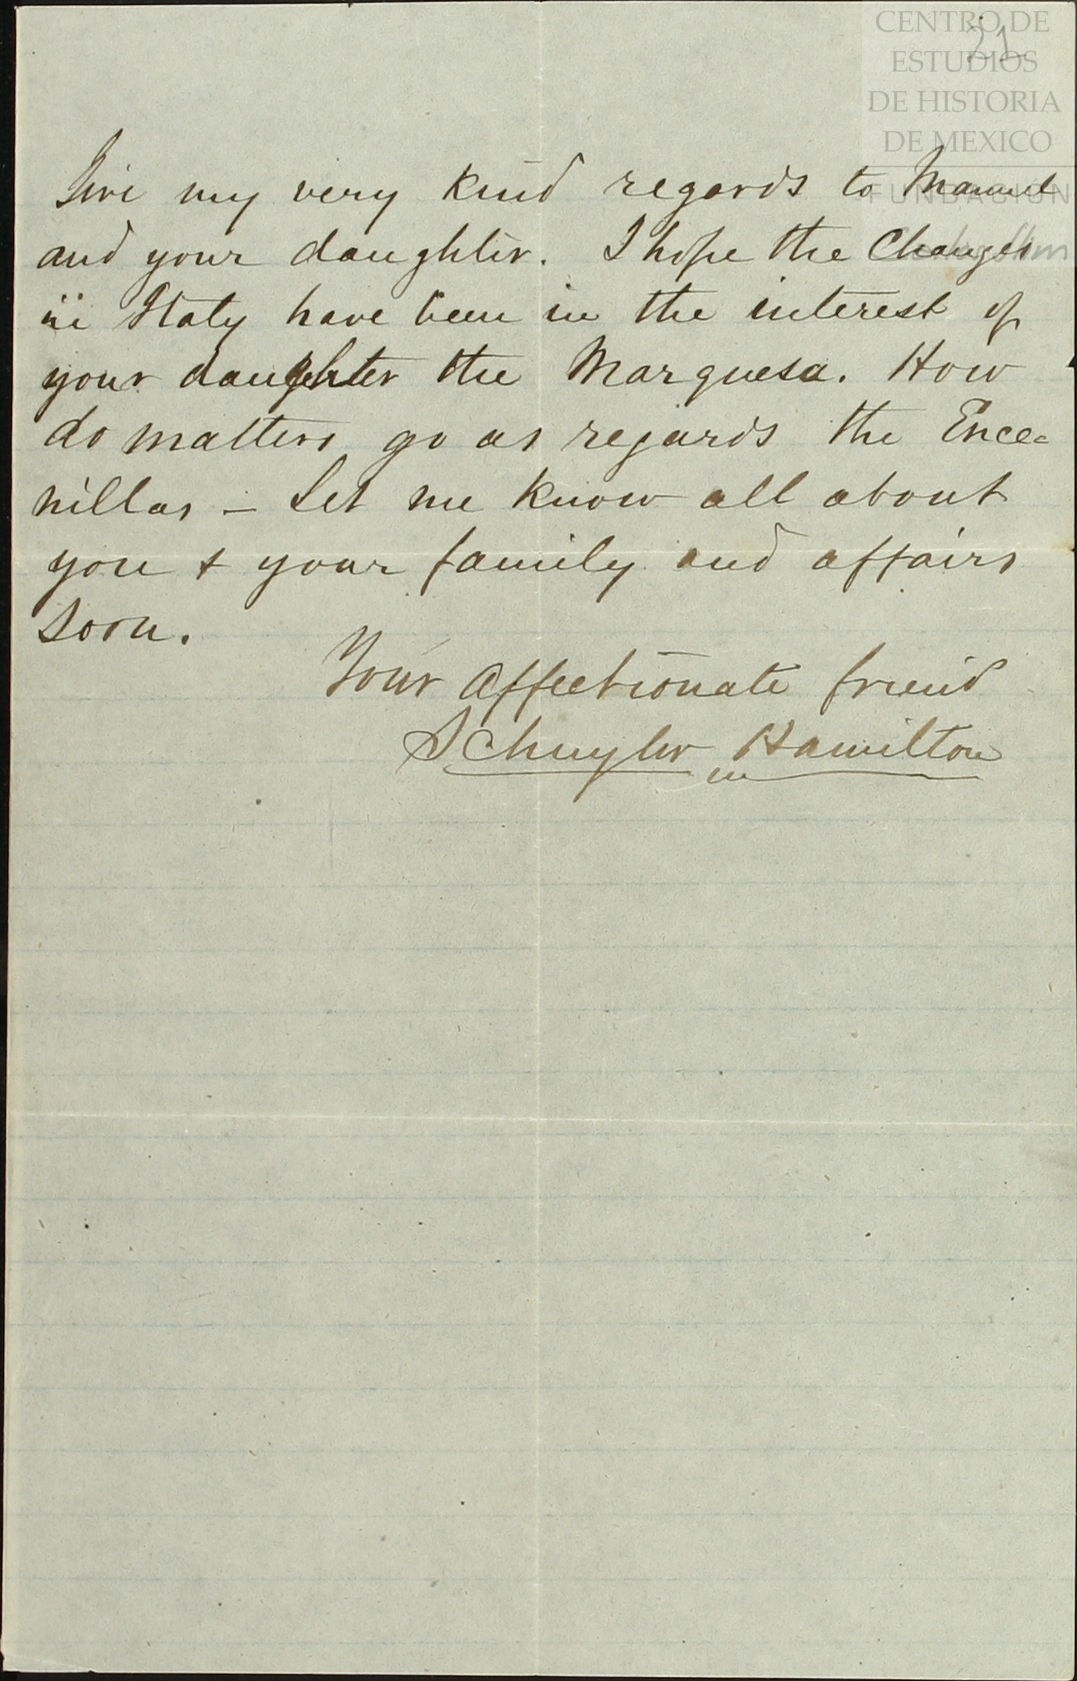 CENTRO DE
ESTUDIOS
DE HISTORIA
DE MEXICO
FUNDACIÓN
21
Give my very kind regards to Manuel
and your daughter. I hope the Changes
in Italy have been in the interest of
your daughter the Marquesa. How
do matters go as regards the Ence=
nillas – Let me know all about
you & your family and affairs
soon.
Your affectionate friend
Schuyler Hamilton